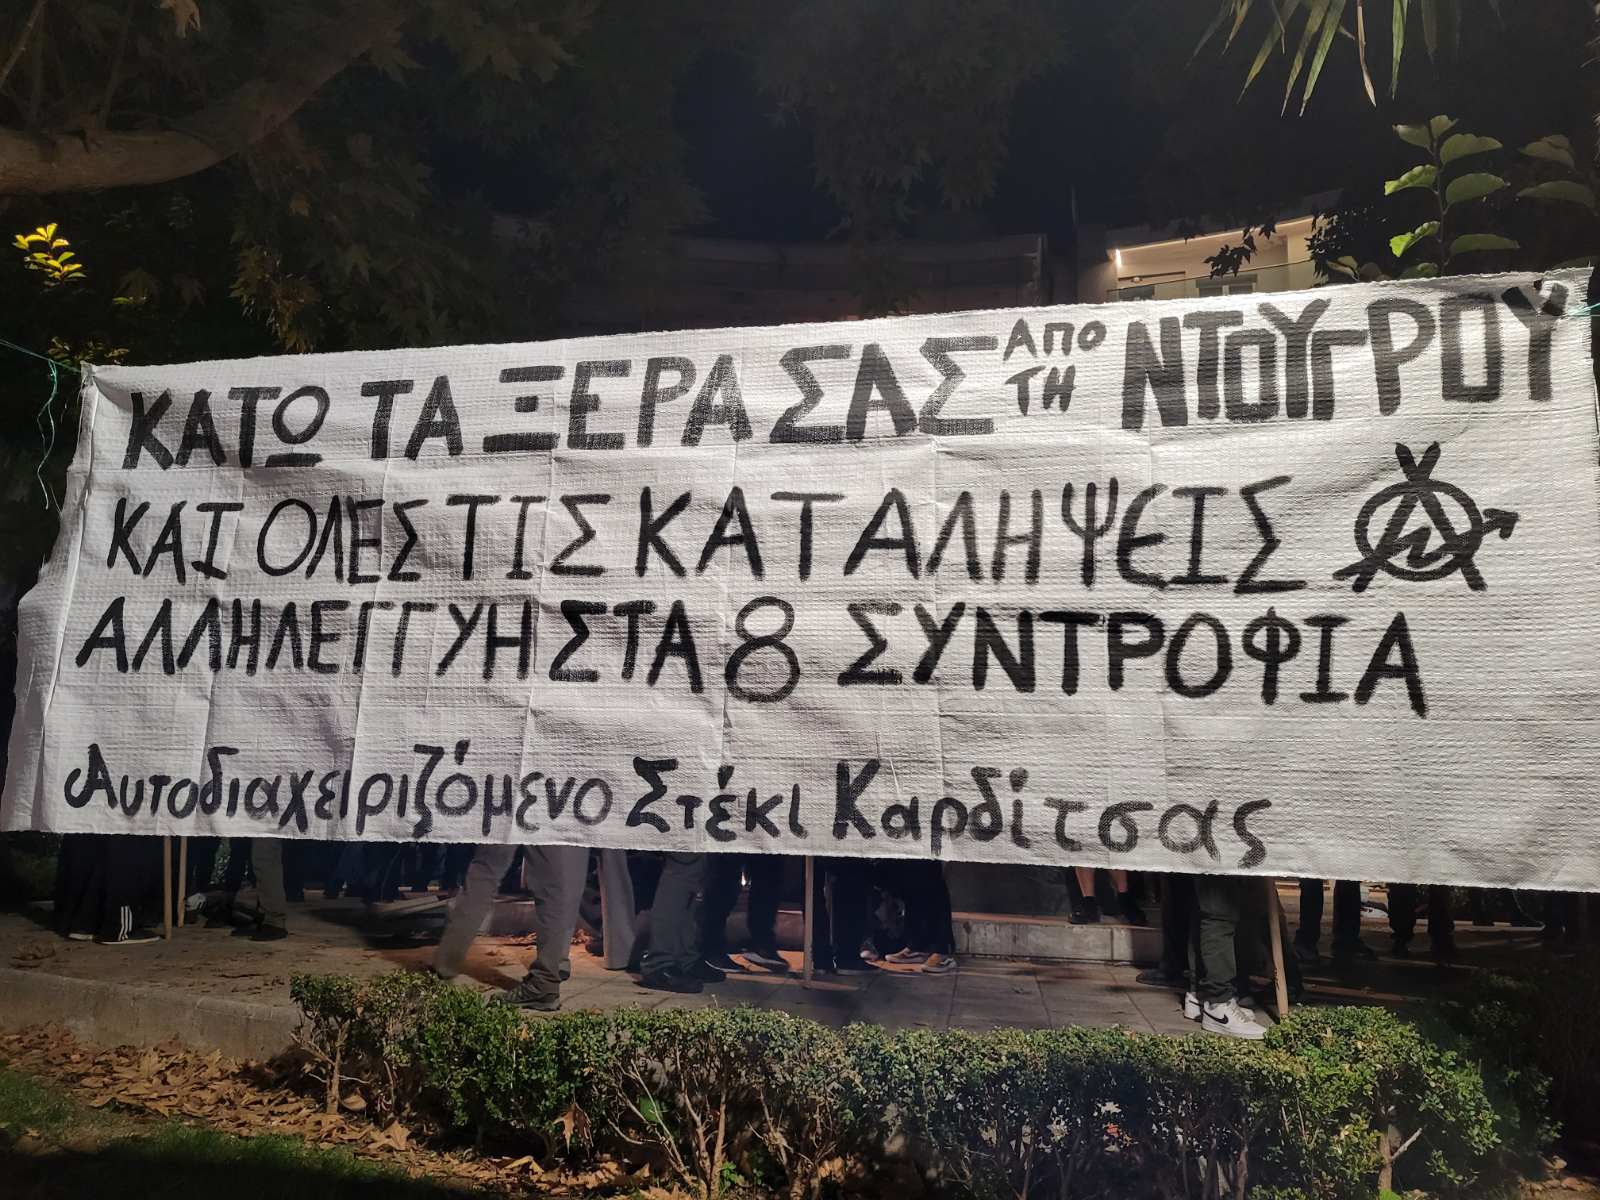 ΚΑΤΩ ΤΑ ΞΕΡΑ ΣΑΣ ΑΠΟ ΤΗ ΝΤΟΥΓΡΟΥ
ΚΑΙ ΟΛΕΣ ΤΙΣ ΚΑΤΑΛΗΨΕΙΣ
ΑΛΛΗΛΕΓΓΥΗ ΣΤΑ 8 ΣΥΝΤΡΟΦΙΑ
Αυτοδιαχειριζόμενο Στέκι Καρδίτσας